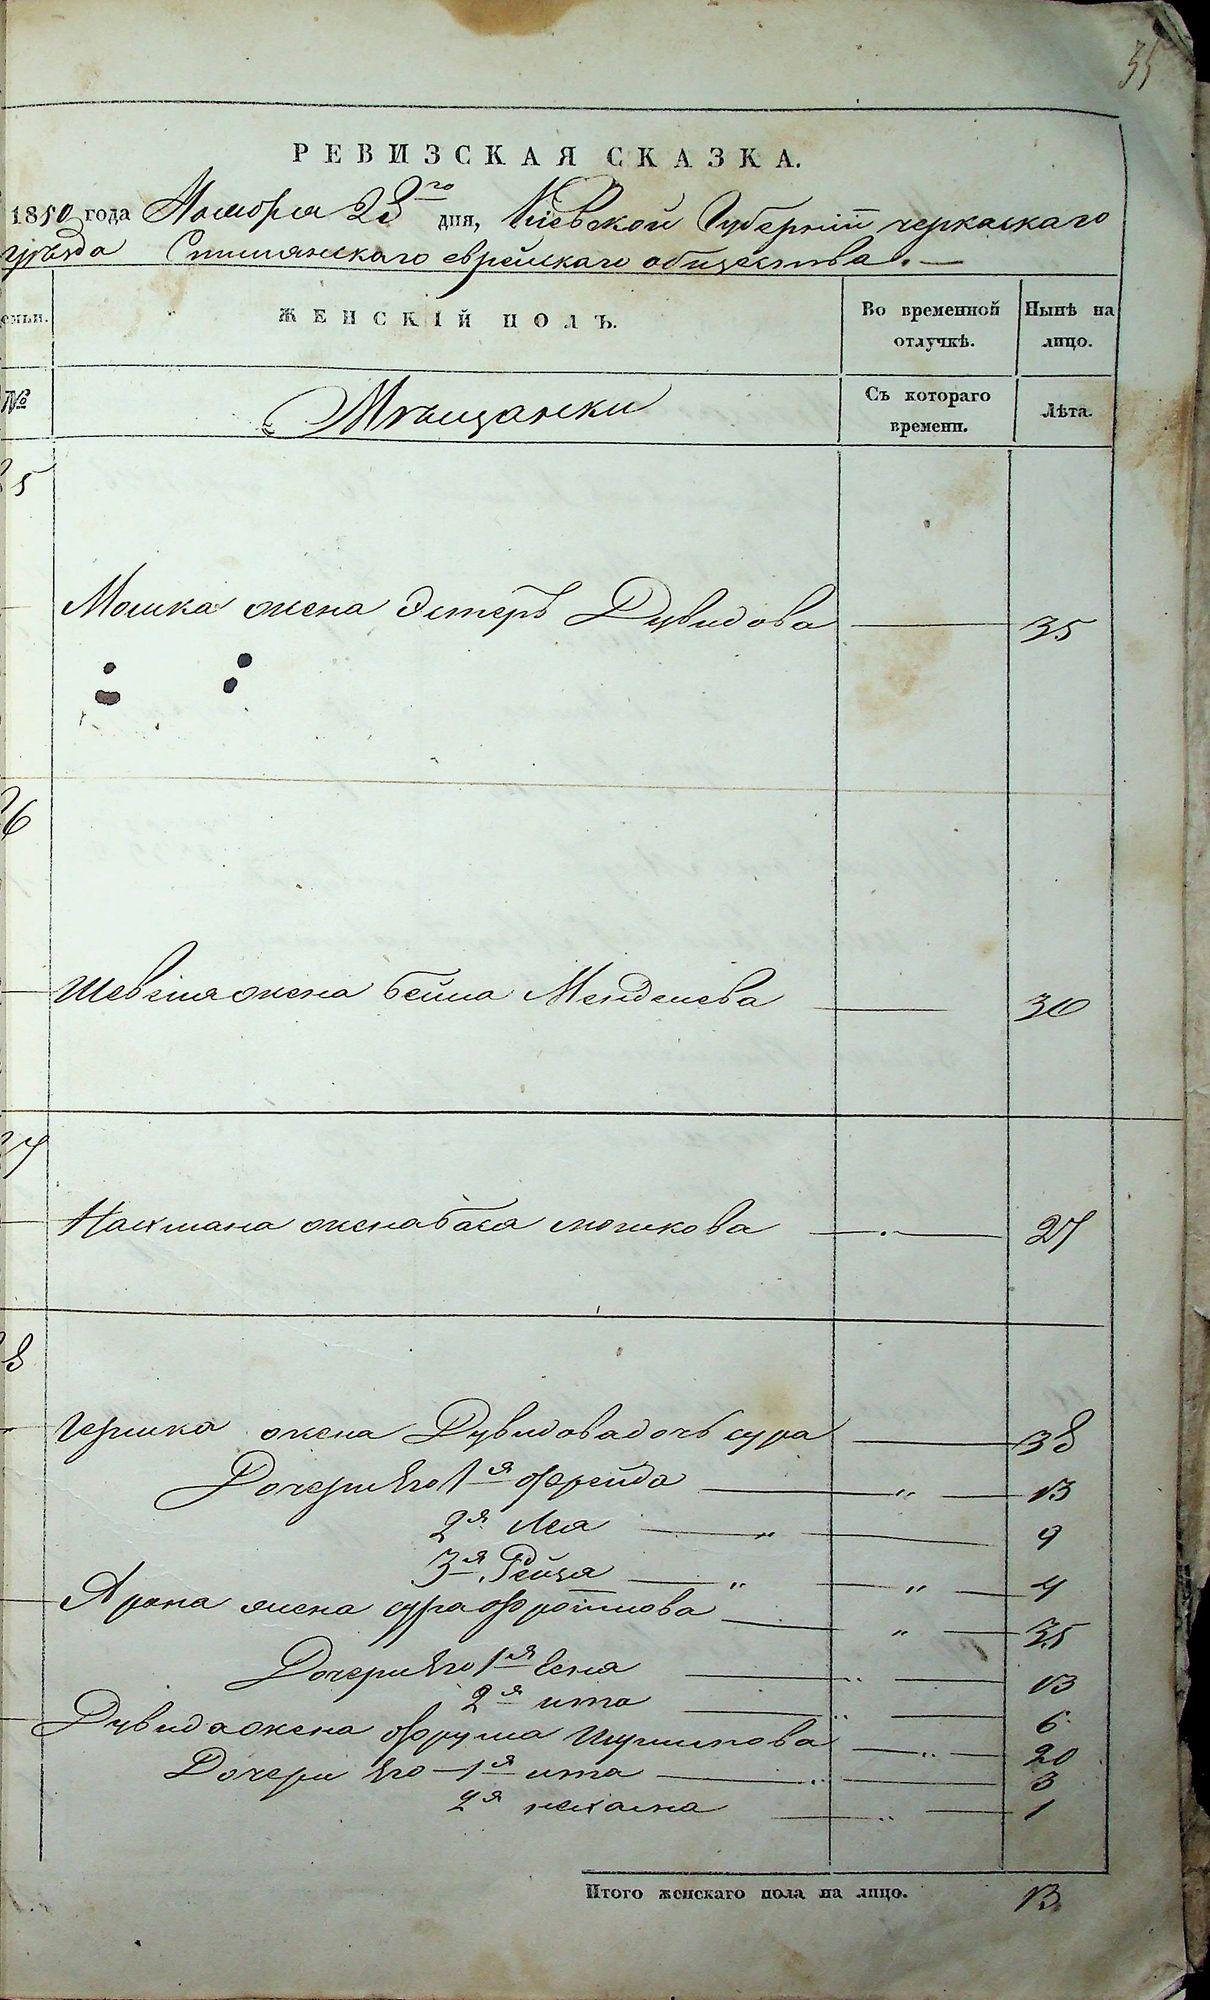 35
РЕВИЗСКАЯ СКАЗКА.
1850 года Ноября 23го дня, Кіевской Губерніи черкаскаго
уѣзда Смилянскаго еврейскаго общества.
емьи. ЖЕНСКІЙ ПОЛЪ. Во временной отлучкѣ. Нынѣ на лицо.
№ Мѣщанки Съ котораго времени. Лѣта.
25
Мошка жена Эстеръ Дувидова 35
26
жена бейла Менделева 30
27
Нахмана жена бася мошкова 27
28
Гершка жена Дувидова дочь сура 38
Дочери Его 1я Фрейда 13
2я Лея 9
3я Рейза 4
Арона жена сура Фроимова 35
Дочери Его 1я Хена 13
2я ита 6
Дувида жена Фрума 20
Дочери Его 1я ита 3
2я нехама 1
Итого женскаго пола на лицо. 13